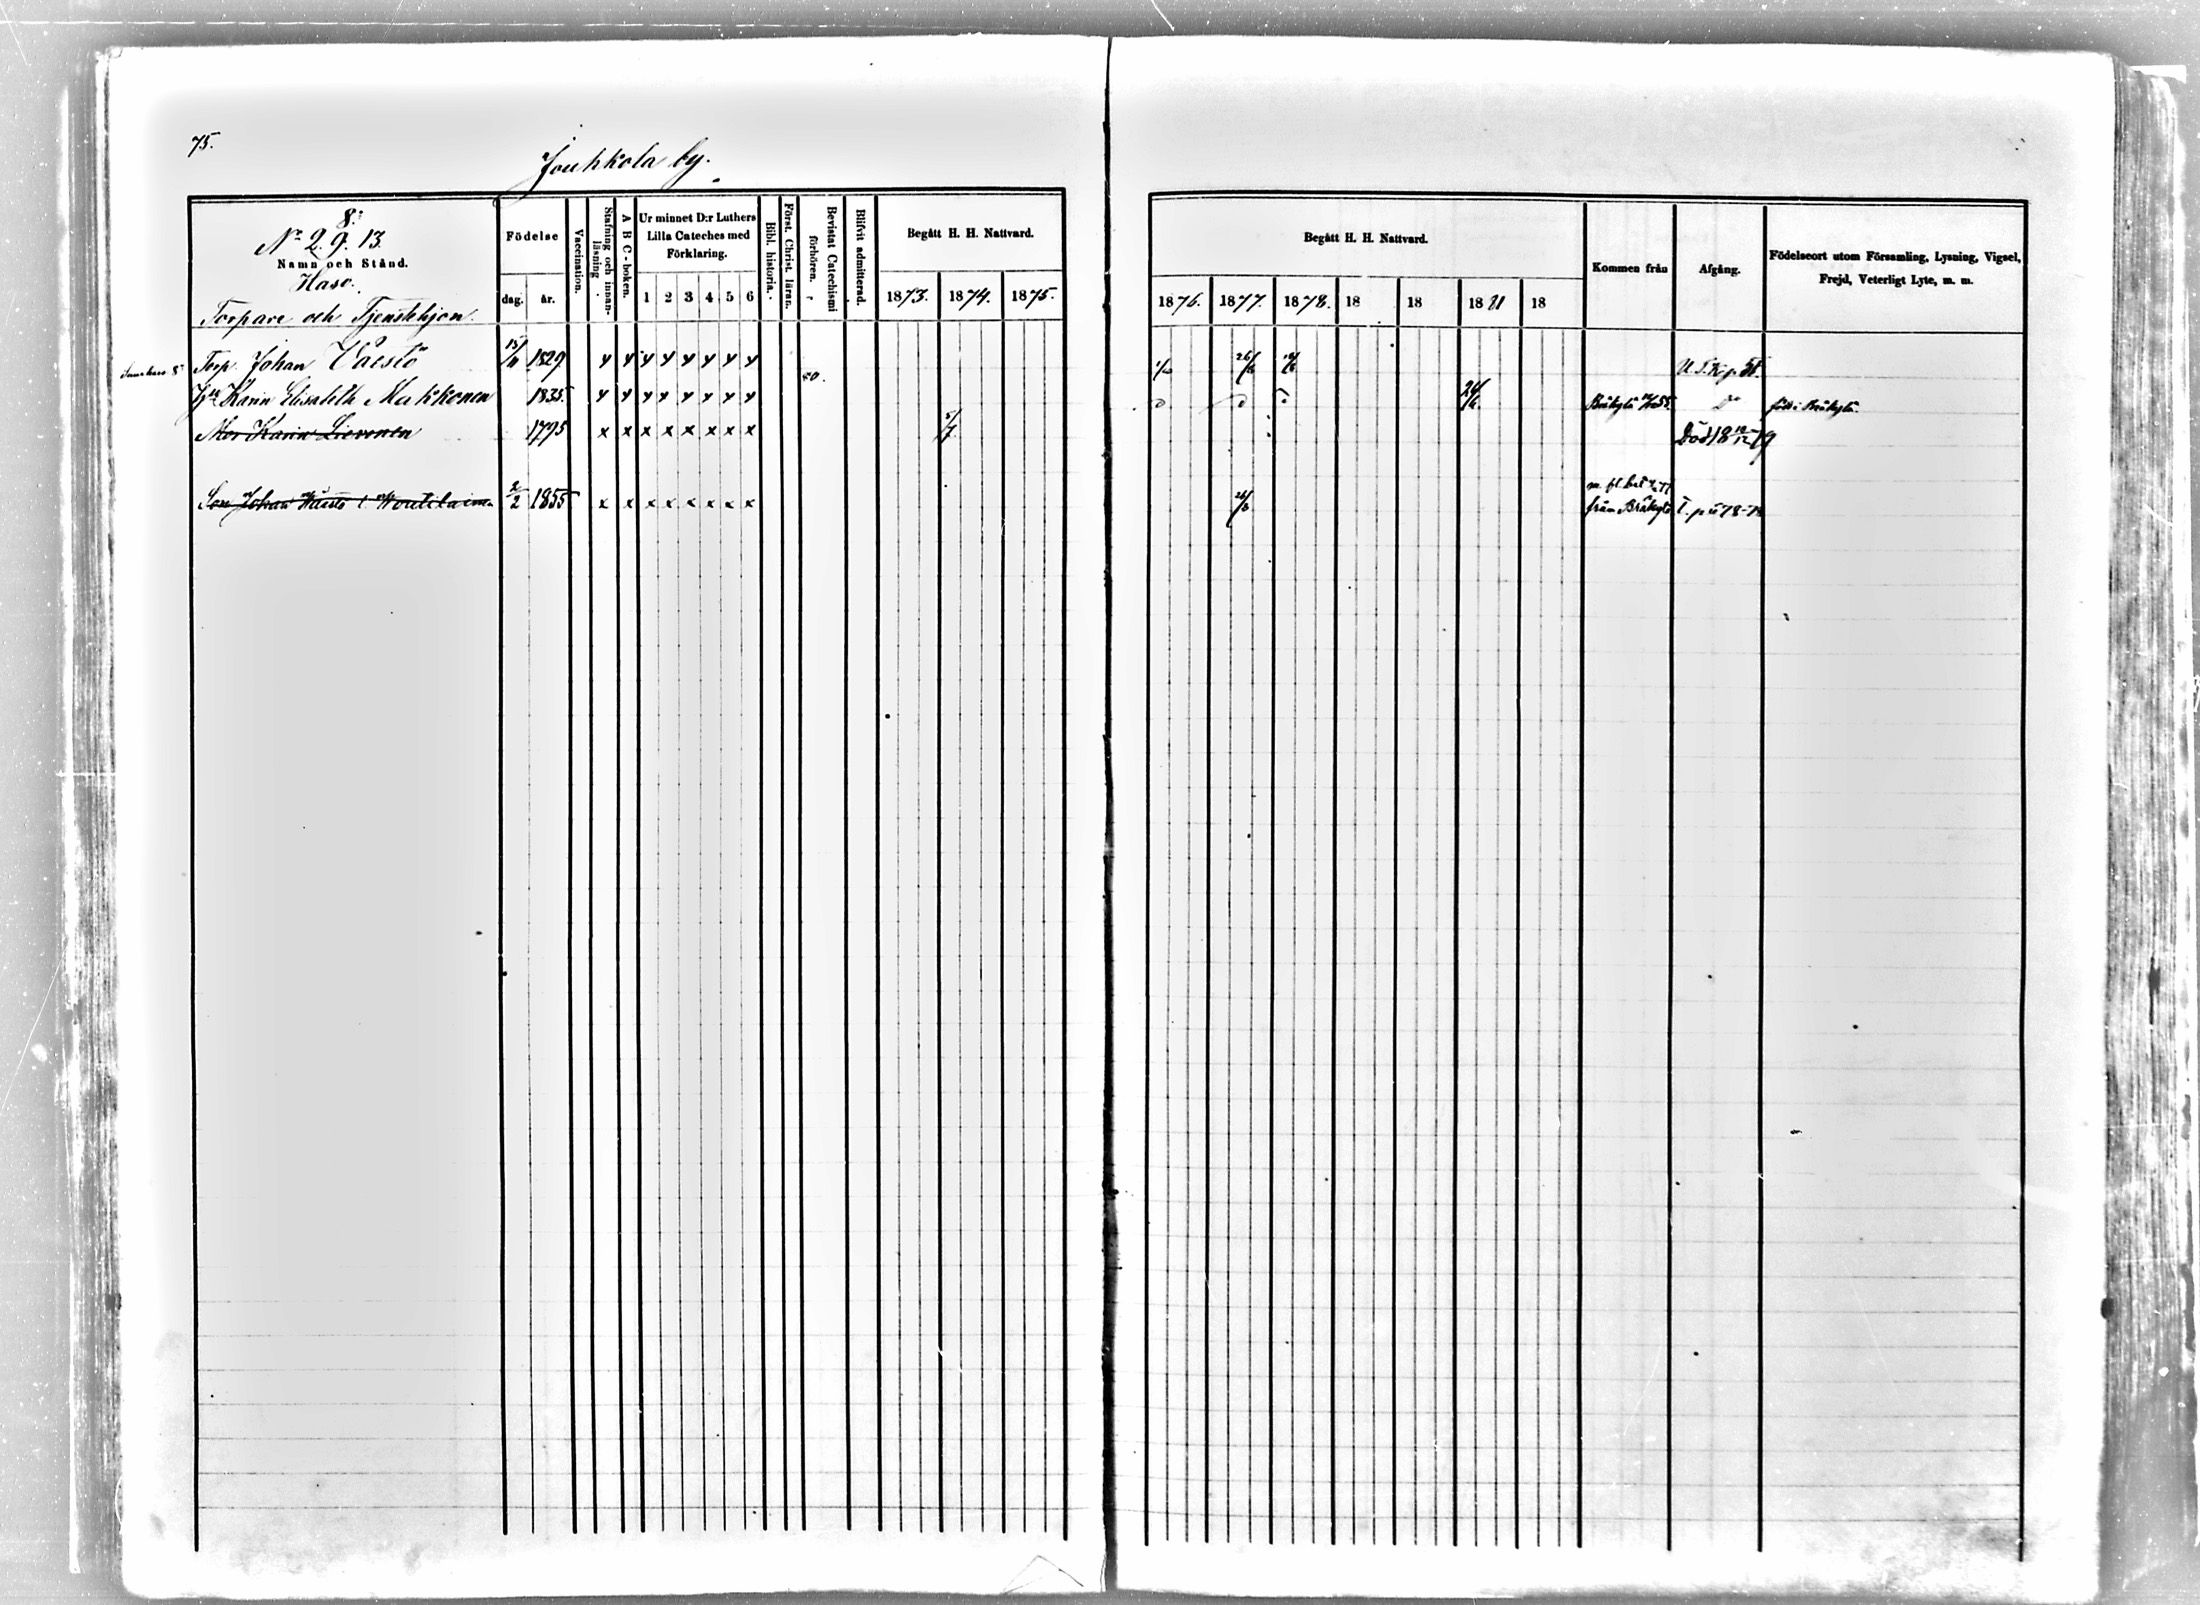 75.
Jouhkola by.
8.
No 2. 9. 13.
Namn och Stånd.
Haso.
Torpare och Tjenstehjon.
Födelse
dag. år.
Vaccination.
Stafning och innan-
läsning
A B C-boken.
Ur minnet D:r Luthers
Lilla Cateches med
Förklaring.
1 2 3 4 5 6
Bibl. historia.
Först. Christ. läran.
Bevistat Catechismi
förhören.
Blifvit admitterad.
Begått H. H. Nattvard.
1873. 1874. 1875.
Begått H. H. Nattvard.
1876. 1877. 1878. 18 18 1881 18
Kommen från
Afgång.
Födelseort utom Församling, Lysning, Vigsel,
Frejd, Veterligt Lyte, m. m.
Torp. Johan Väestö 15/11 1829 x x x x x x x x 26/6
Karin Elisabeth Makkonen 1835. x x x x x x x x 24/6 född i Bräkylä.
Mor Karin Lievonen 1795 x x x x x x x x 5/7 Död 18 12/12 79
Son Johan Väestö l. Woutilainen 2/2 1855 x x x x x x x x 26/6 från Bräkylä